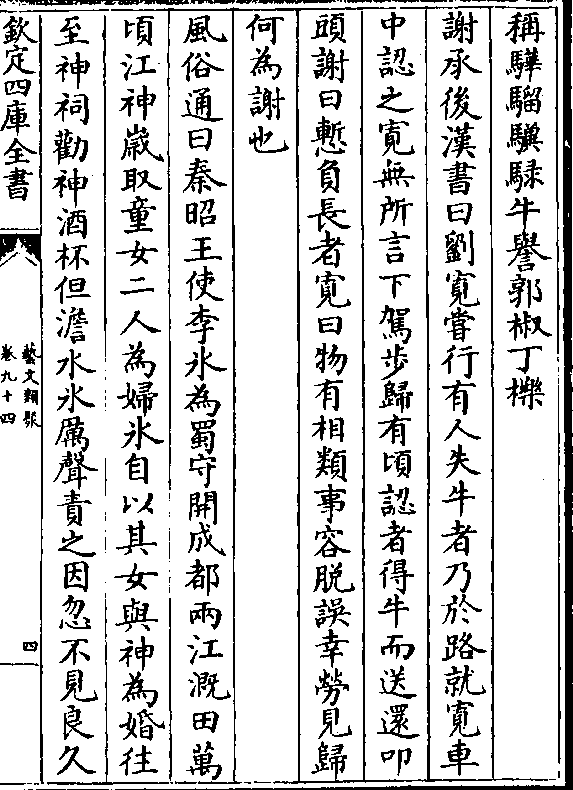 稱驊騮騹騄牛譽郭椒丁櫟
謝承後漢書曰劉寛嘗行有人失牛者乃於路就寛車
中認之寛無所言下駕歩歸有頃認者得牛而送還叩
頭謝曰慙負長者寛曰物有相類事容脱誤幸勞見歸
何為謝也
風俗通曰秦昭王使李氷為蜀守開成都兩江溉田萬
頃江神歳取童女二人為婦氷自以其女與神為婚往
至神祠勸神酒杯但澹水氷厲聲責之因忽不見良久
欽定四庫全書
藝文類聚
卷九十四
四